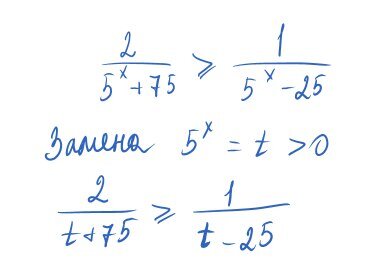 2/(5^x + 75) ⩾ 1/(5^x - 25)
Замена 5^x = t > 0
2/(t + 75) ⩾ 1/(t - 25)